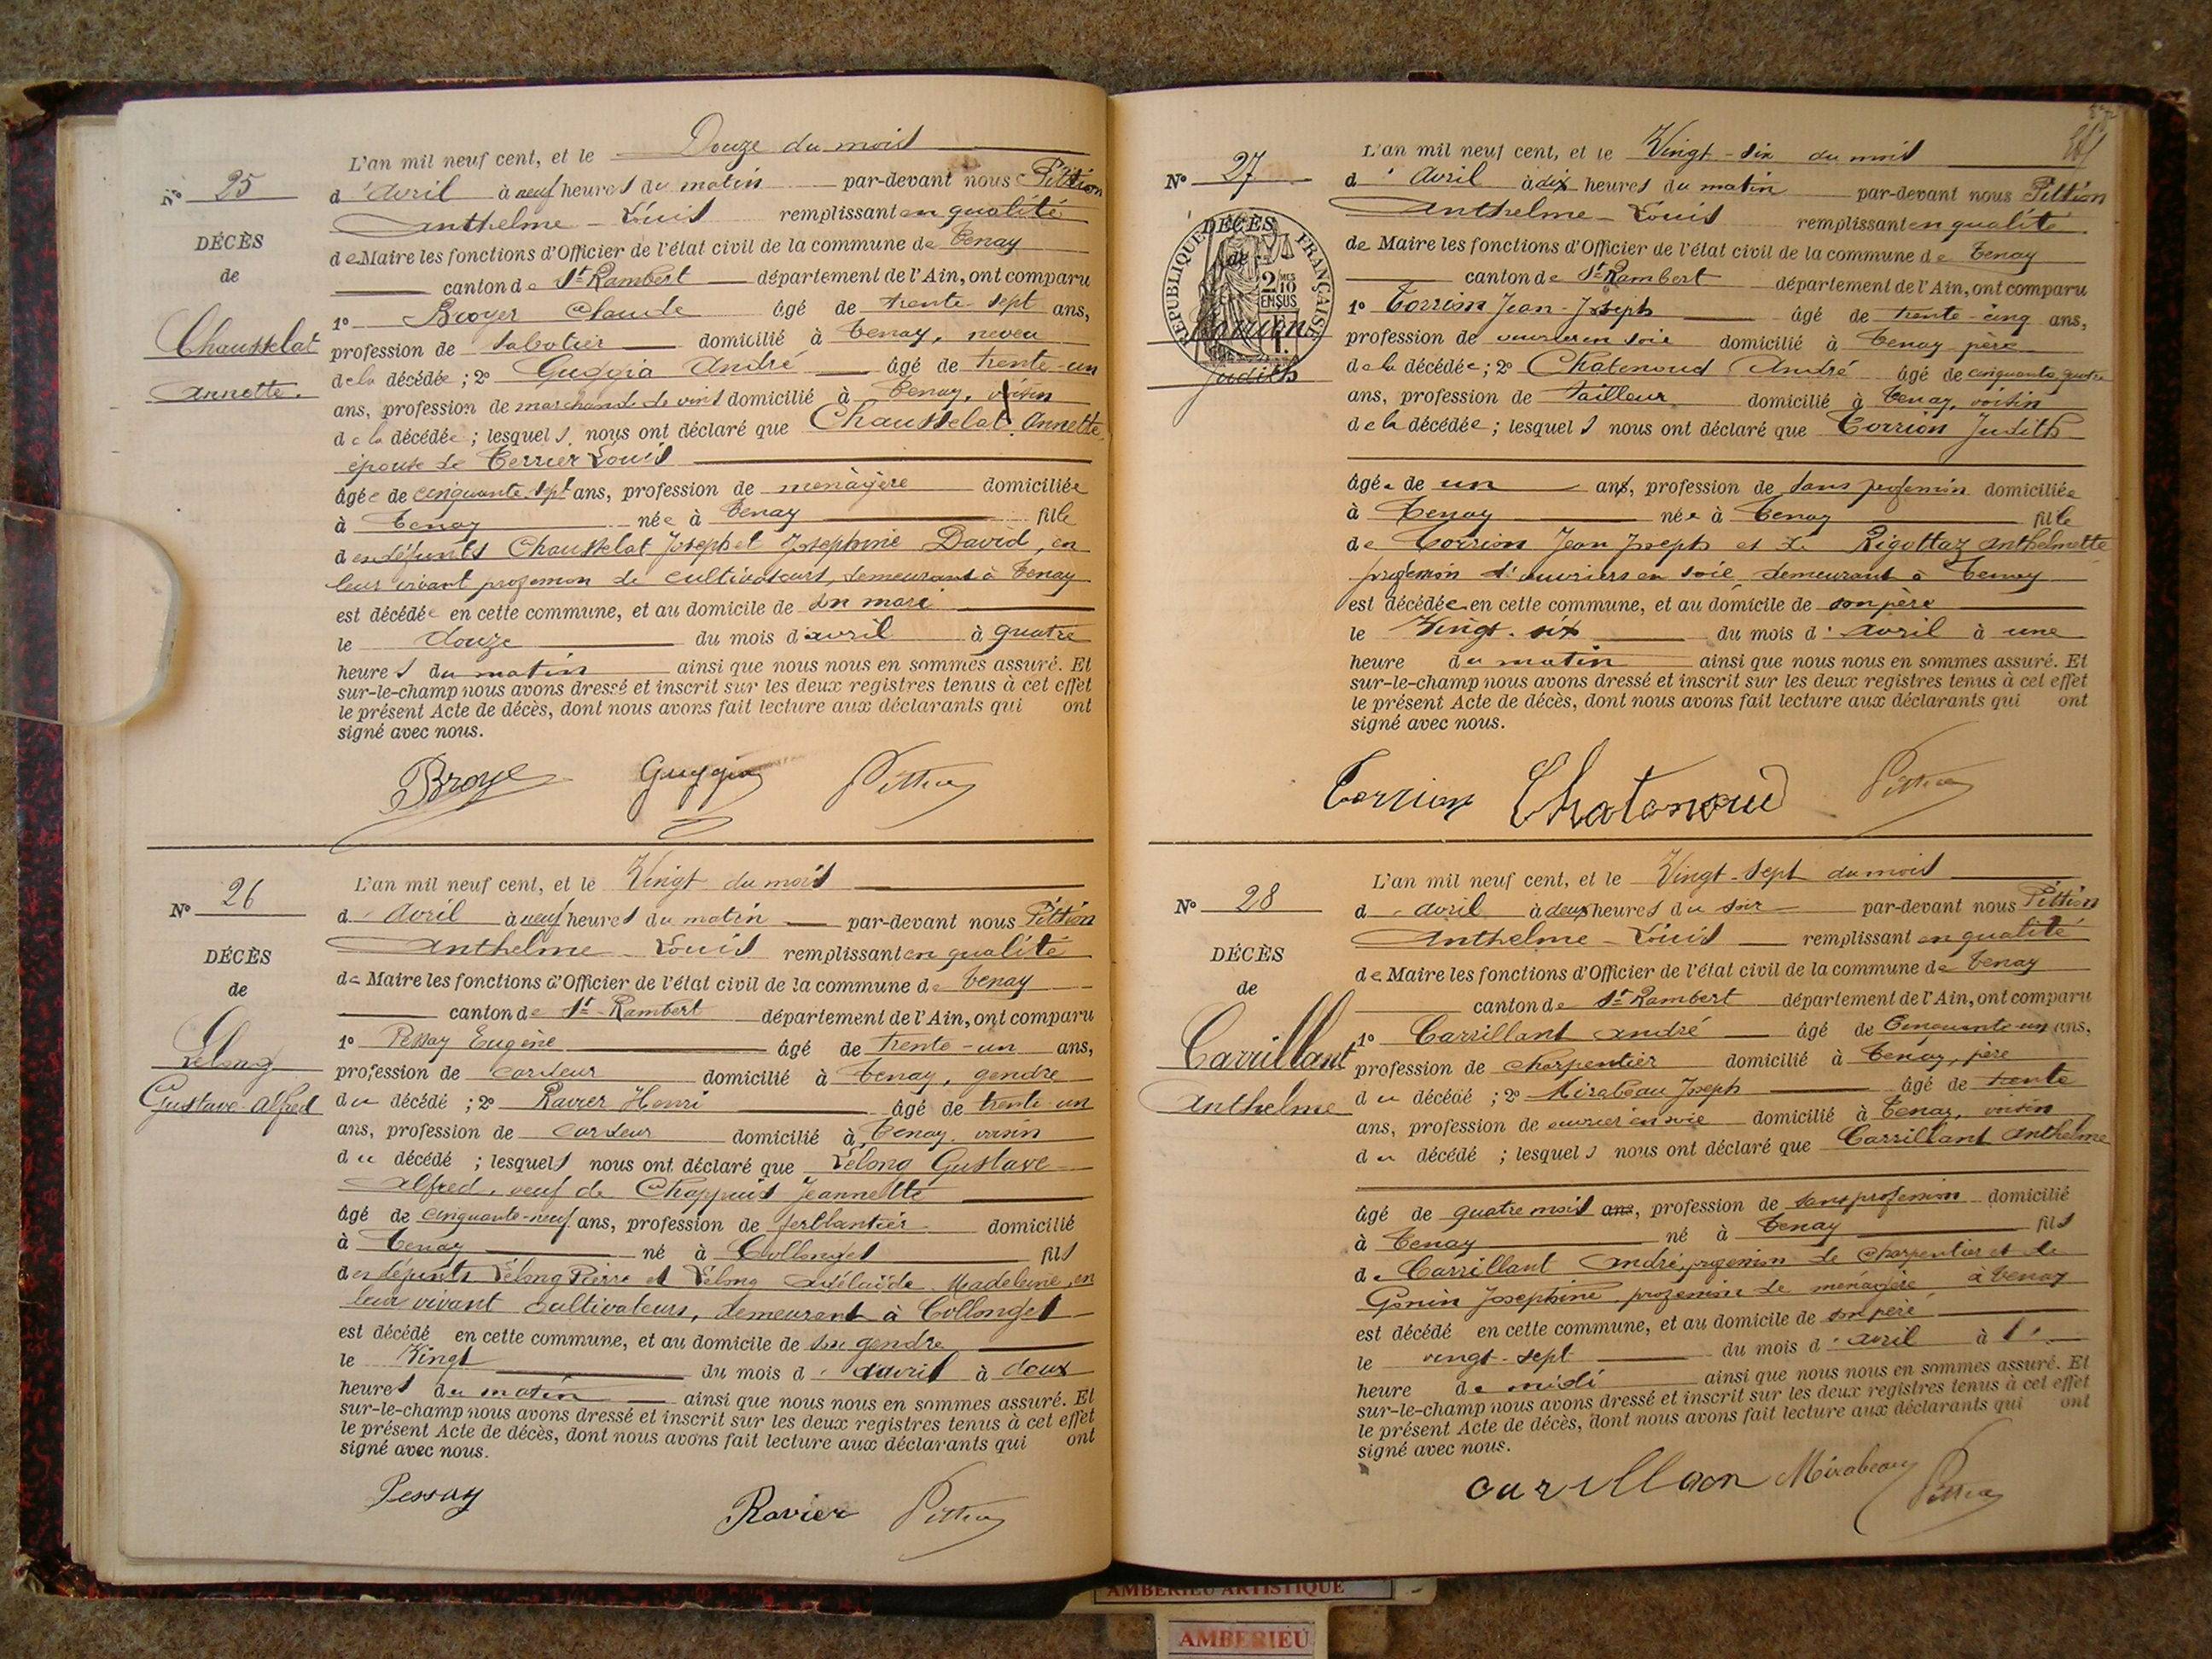 L'an mil neuf cent, et le Douze du mois
N° 25
d'Avril à neuf heures du matin par-devant nous Pittion
Anthelme-Louis remplissant en qualité
DÉCÈS
de Maire les fonctions d'Officier de l'état civil de la commune de Tenay
de
canton de St-Rambert département de l'Ain, ont comparu
1° Broyer Claude âgé de trente-sept ans,
Chausselat
profession de sabotier domicilié à Tenay, neveu
de la décédée; 2° Guggia André âgé de trente-un
Annette.
ans, profession de marchand de vins domicilié à Tenay, voisin
de la décédée; lesquels nous ont déclaré que Chausselat Annette
épouse de Terrier Louis
âgée de cinquante sept ans, profession de ménagère domiciliée
à Tenay née à Tenay fille
des défunts Chausselat Joseph et Josephine David, en
leur vivant profession de cultivateurs, demeurant à Tenay
est décédée en cette commune, et au domicile de son mari
le douze du mois d'avril à quatre
heures du matin ainsi que nous nous en sommes assuré. Et
sur-le-champ nous avons dressé et inscrit sur les deux registres tenus à cet effet
le présent Acte de décès, dont nous avons fait lecture aux déclarants qui ont
signé avec nous.
Broye Guggia Pittion
L'an mil neuf cent, et le Vingt du mois
N° 26
d'Avril à neuf heures du matin par-devant nous Pittion
Anthelme-Louis remplissant en qualité
DÉCÈS
de Maire les fonctions d'Officier de l'état civil de la commune de Tenay
de
canton de St-Rambert département de l'Ain, ont comparu
1° Pessay Eugène âgé de trente-un ans,
Lelong
profession de cardeur domicilié à Tenay, gendre
Gustave-Alfred
du décédé; 2° Ravier Henri âgé de trente-un
ans, profession de cardeur domicilié à Tenay, voisin
du décédé; lesquels nous ont déclaré que Lelong Gustave
Alfred, veuf de Chappuis Jeannette
âgé de cinquante-neuf ans, profession de ferblantier domicilié
à Tenay né à Collonges fils
des défunts Lelong Pierre et Lelong Adélaïde Madeleine, en
leur vivant cultivateurs, demeurant à Collonges
est décédé en cette commune, et au domicile de son gendre
le Vingt du mois d'avril à deux
heures du matin ainsi que nous nous en sommes assuré. Et
sur-le-champ nous avons dressé et inscrit sur les deux registres tenus à cet effet
le présent Acte de décès, dont nous avons fait lecture aux déclarants qui ont
signé avec nous.
Pessay Ravier Pittion
L'an mil neuf cent, et le Vingt-six du mois
N° 27
d'Avril à dix heures du matin par-devant nous Pittion
Anthelme-Louis remplissant en qualité
DÉCÈS
RÉPUBLIQUE FRANÇAISE
de Maire les fonctions d'Officier de l'état civil de la commune de Tenay
de
2 MES
10
EN SUS
canton de St-Rambert département de l'Ain, ont comparu
1° Torrion Jean-Joseph âgé de trente-cinq ans,
Torrion
profession de ouvrier en soie domicilié à Tenay père
Judith
de la décédée; 2° Chatenoud André âgé de cinquante quatre
ans, profession de tailleur domicilié à Tenay, voisin
de la décédée; lesquels nous ont déclaré que Torrion Judith
âgée de un ans, profession de sans profession domiciliée
à Tenay née à Tenay fille
de Torrion Jean Joseph et de Rigottaz Anthelmette
profession d'ouvriers en soie demeurant à Tenay
est décédée en cette commune, et au domicile de son père
le Vingt-six du mois d'avril à une
heure du matin ainsi que nous nous en sommes assuré. Et
sur-le-champ nous avons dressé et inscrit sur les deux registres tenus à cet effet
le présent Acte de décès, dont nous avons fait lecture aux déclarants qui ont
signé avec nous.
Torrion Chatenoud Pittion
L'an mil neuf cent, et le Vingt-sept du mois
N° 28
d'avril à deux heures du soir par-devant nous Pittion
Anthelme-Louis remplissant en qualité
DÉCÈS
de Maire les fonctions d'Officier de l'état civil de la commune de Tenay
de
canton de St-Rambert département de l'Ain, ont comparu
1° Carrillant André âgé de Cinquante-un ans,
Carrillant
profession de charpentier domicilié à Tenay, père
du décédé; 2° Mirabeau Joseph âgé de trente
Anthelme
ans, profession de ouvrier en soie domicilié à Tenay, voisin
du décédé; lesquels nous ont déclaré que Carrillant Anthelme
âgé de quatre mois ans, profession de sans profession domicilié
à Tenay né à Tenay fils
de Carrillant André, profession de charpentier et de
Gonin Josephine, profession de ménagère à Tenay
est décédé en cette commune, et au domicile de son père
le vingt-sept du mois d'avril à l'
heure de midi ainsi que nous nous en sommes assuré. Et
sur-le-champ nous avons dressé et inscrit sur les deux registres tenus à cet effet
le présent Acte de décès, dont nous avons fait lecture aux déclarants qui ont
signé avec nous.
carillaon Mirabeau Pittion
AMBERIEU ARTISTIQUE
AMBERIEU